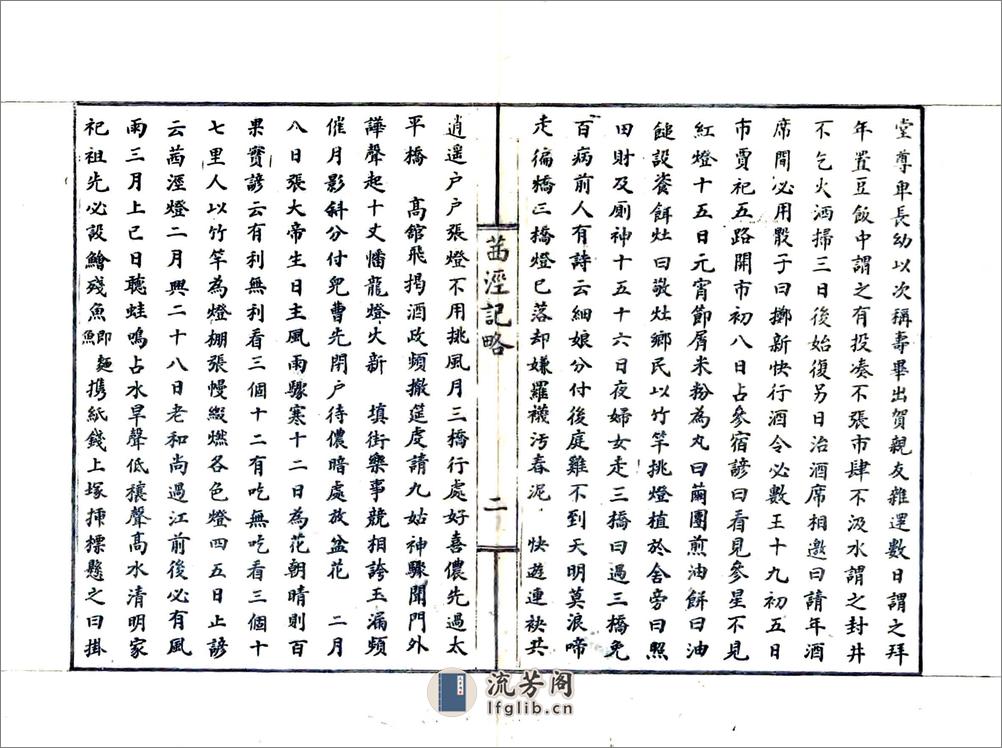 堂尊卑長幼以次稱壽畢出賀親友雜遝數日謂之拜
年置豆飯中謂之有投凑不張市肆不汲水謂之封井
不乞火洒掃三日後始復另日治酒席相邀曰請年酒
席間必用骰子曰擲新快行酒令必數王十九初五日
市賈祀五路開市初八日占參宿諺曰看見參星不見
紅燈十五日元宵節屑米粉為丸曰繭團煎油餅曰油
䭔設餈餌灶曰敬灶鄉民以竹竿挑燈植於舍旁曰照
田財及廁神十五十六日夜婦女走三橋曰過三橋免
百病前人有詩云細娘分付後庭雞不到天明莫浪啼
走徧橋三橋燈已落却嫌羅襪汚春泥 快遊連袂共
茜涇記略
二
逍遥户户張燈不用挑風月三橋行處好喜儂先過太
平橋 髙館飛揭酒政頻撤筵虔請九姑神驟聞門外
譁聲起十丈幡龍燈火新 填街樂事競相誇玉漏頻
催月影斜分付兒曹先閉户待儂暗處放盆花 二月
八日張大帝生日主風雨驟寒十二日為花朝晴則百
果實諺云有利無利看三個十二有吃無吃看三個十
七里人以竹竿為燈棚張幔綴燃各色燈四五日止諺
云茜涇燈二月興二十八日老和尚過江前後必有風
雨三月上巳日聽蛙鳴占水旱聲低穰聲髙水清明家
祀祖先必設鱠殘魚即麵魚携紙錢上塚揷標懸之曰掛
流芳阁
lfglib.cn